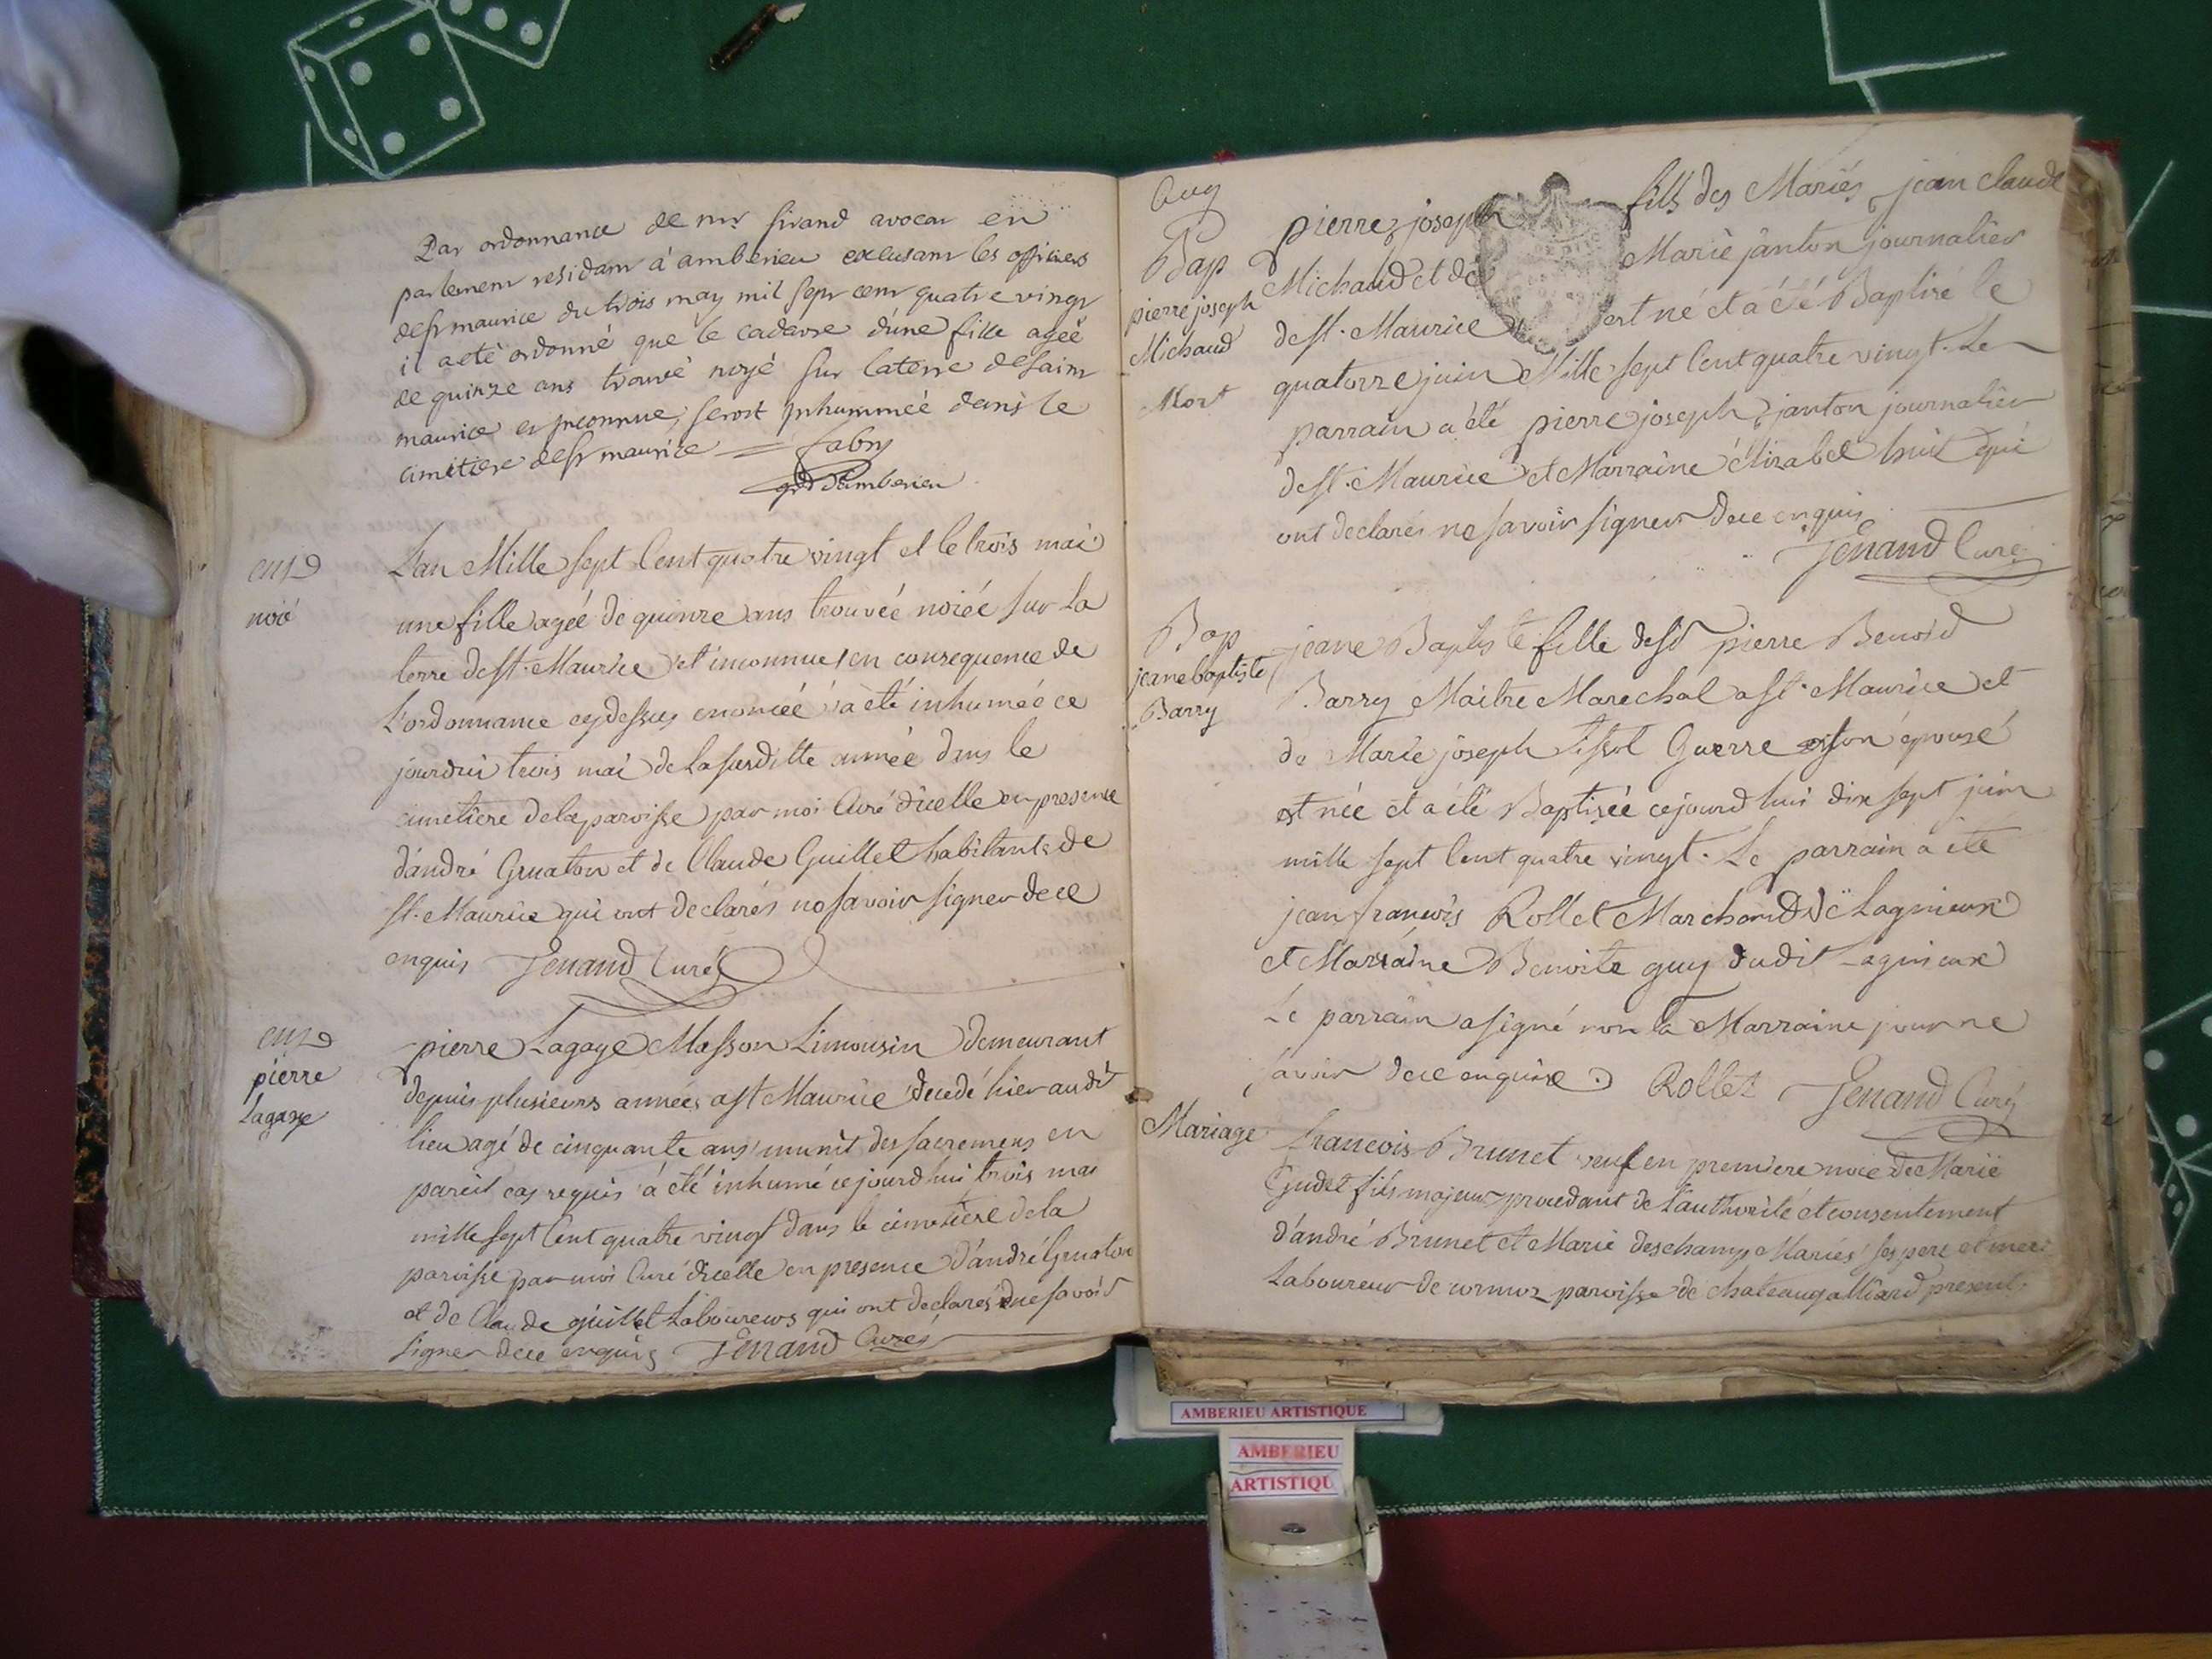 Par ordonnance de mr. sirand avocat en
parlement residant a ambérieu excusant les officiers
de st maurice du trois may mil sept cent quatre vingt
il a eté ordonné que le cadavre d'une fille ageé
de quinze ans trouvé noyé sur la terre de saint
maurice et inconnue, seroit inhummeé dans le
cimitiere de st maurice = fabry
d'amberieu
noié
L'an Mille sept Cent quatre vingt et le trois mai
une fille agéé de quinze ans trouvéé noiéé sur La
terre de st. Maurice et inconnue en consequence de
L'ordonnance cy dessus enoncéé a été inhuméé ce
jourdui trois mai de La susditte année dans le
cimetiere de la paroisse par moi Curé d'icelle en presence
d'andré Gruaton et de Claude Guillet habitants de
st. Maurice qui ont declarés ne savoir signer de ce
enquis Jenand Curé
pierre
Lagaye
pierre Lagaye Masson Limousin demeurant
depuis plusieurs années a st Maurice decedé hier audit
lieu agé de cinquante ans munit des sacremens en
pareil cas requis a été inhumé cejourd'hui trois mai
mille sept Cent quatre vingt dans le cimetiere de la
paroisse par moi Curé d'icelle en presence d'andré Gruaton
et de Claude guillet Laboureurs qui ont declarés ne savoir
signer de ce enquis Jenand Curé
Bap
pierre joseph
Michaud
Mort
pierre joseph fils des Mariés jean claude
Michaud et de Marie janton journalier
de st. Maurice est né et a été Baptisé le
quatorze juin Mille sept Cent quatre vingt. Le
parrain a été pierre joseph janton journalier
de st. Maurice et Marraine élizabet huit qui
ont declarés ne savoir signer de ce enquis
Jenand Curé
Bap
jeane baptiste
Barry
jeane Baptiste fille de sr pierre Benoid
Barry Maitre Marechal a st. Maurice et
de Marie joseph tissot Guerre son épouse
est née et a été Baptisée cejourd'hui dix sept juin
mille sept Cent quatre vingt. Le parrain a été
jean francois Rollet Marchand de Lagnieux
et Marraine Benoite guy dudit Lagnieux
Le parrain a signé non la Marraine pour ne
savoir de ce enquise. Rollet Jenand Curé
Mariage
francois Brunet veuf en premiere noce de Marie
Gudet fils majeur procedant de l'authorité et consentement
d'andré Brunet et Marie deschamps Mariés ses pere et mere
Laboureur de cormoz paroisse de chateaugaillard present
AMBERIEU ARTISTIQUE
AMBERIEU
ARTISTIQU